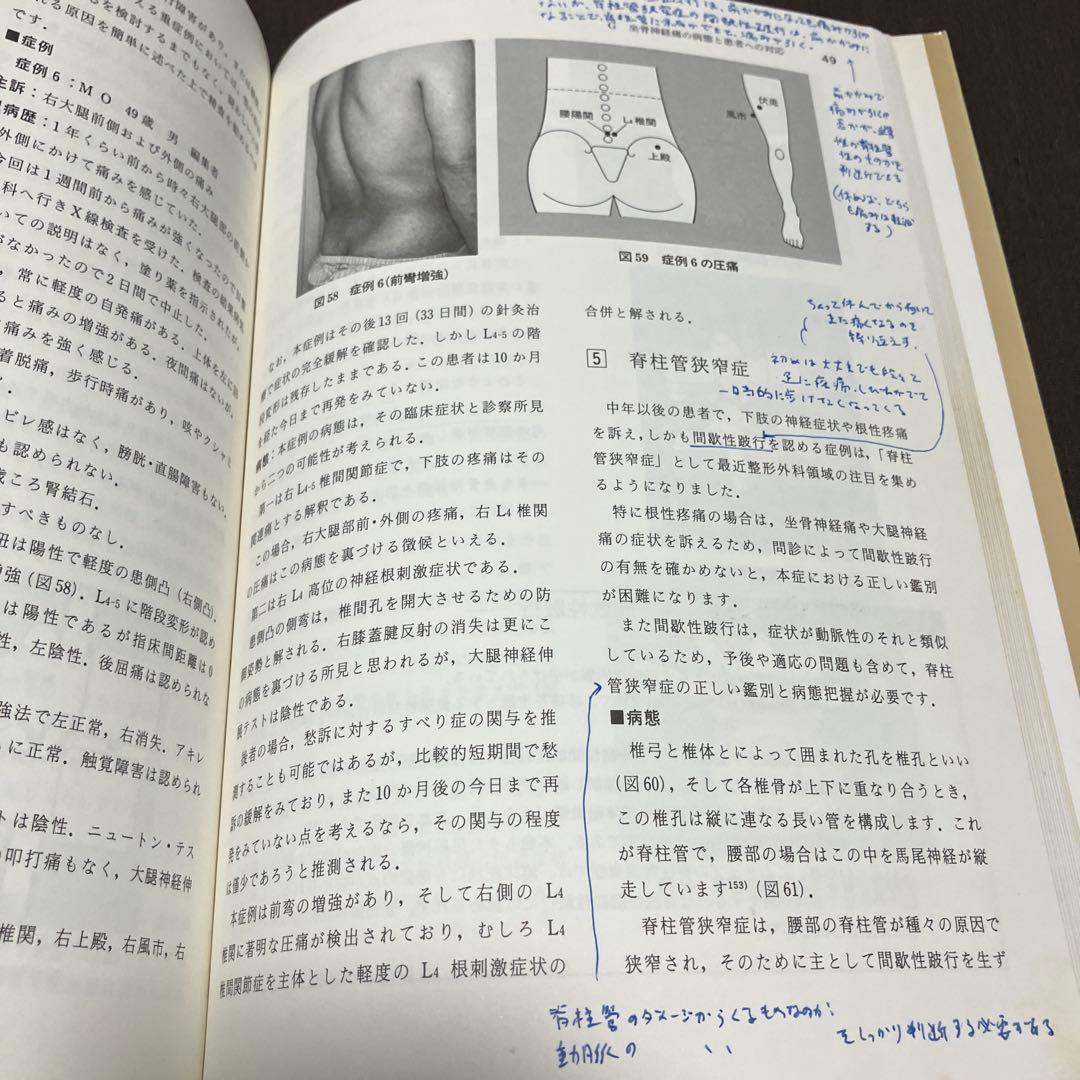 える重症例においては,
を検討するまでもなく,
れる原因を簡単に述べた上で精査を勧め
です.
■症例
症例6:MO 49歳 男 編集者
主訴:右大腿前側および外側の痛み
病歴:1年くらい前から時々右大腿部の前側
外側にかけて痛みを感じていた.
今回は1週間前から痛みが強くなったので
科へ行きX線検査を受けた.検査の結果
いての説明はなく,塗り薬を指示されたが,
がなかったので2日間で中止した.
,常に軽度の自発痛がある.上体を左に
ると痛みの増強がある.夜間痛はないが,
痛みを強く感じる.
着脱痛,歩行時痛があり,咳やクシャミ
ビレ感はなく,膀胱・直腸障害もない.
も認められない.
歳ころ腎結石.
すべきものなし.
丑は陽性で軽度の患側凸(右側凸).
増強(図58).L4-5に階段変形が認め
は陽性であるが指床間距離は0
性,左陰性.後屈痛は認められな
強法で左正常,右消失.アキレ
に正常.触覚障害は認められ
トは陰性.ニュートン・テス
の叩打痛もなく,大腿神経伸
椎関,右上殿,右風市,右
坐骨神経痛の病態と患者への対応
49
腰陽関
L4椎関
上殿
伏兎
風市
図58 症例6(前彎増強)
図59 症例6の圧痛
なお,本症例はその後13回(33日間)の針灸治
療で症状の完全緩解を確認した.しかしL4-5の階
段変形は残存したままである.この患者は10か月
を経た今日まで再発をみていない.
病態:本症例の病態は,その臨床症状と診察所見
から二つの可能性が考えられる.
第一は右L4-5椎間関節症で,下肢の疼痛はその
関連痛とする解釈である.
この場合,右大腿部前・外側の疼痛,右L4椎関
の圧痛はこの病態を裏づける徴候といえる.
第二は右L4高位の神経根刺激症状である.
患側凸の側彎は,椎間孔を開大させるための防
御姿勢と解される.右膝蓋腱反射の消失は更にこ
の病態を裏づける所見と思われるが,大腿神経伸
展テストは陰性である.
後者の場合,愁訴に対するすべり症の関与を推
測することも可能ではあるが,比較的短期間で愁
訴の緩解をみており,また10か月後の今日まで再
発をみていない点を考えるなら,その関与の程度
は僅少であろうと推測される.
本症例は前弯の増強があり,そして右側のL4
椎関に著明な圧痛が検出されており,むしろL4
椎間関節症を主体とした軽度のL4根刺激症状の
合併と解される.
ちょって休んでから歩いて
また痛くなるので
繰り返えす.
5 脊柱管狭窄症
初めは大丈夫でも段々と
足に疼痛・しびれがでて
一時的に歩けなくなってくる
中年以後の患者で,下肢の神経症状や根性疼痛
を訴え,しかも間歇性跛行を認める症例は,「脊柱
管狭窄症」として最近整形外科領域の注目を集め
るようになりました.
特に根性疼痛の場合は,坐骨神経痛や大腿神経
痛の症状を訴えるため,問診によって間歇性跛行
の有無を確かめないと,本症における正しい鑑別
が困難になります.
また間歇性跛行は,症状が動脈性のそれと類似
しているため,予後や適応の問題も含めて,脊柱
管狭窄症の正しい鑑別と病態把握が必要です.
■病態
椎弓と椎体とによって囲まれた孔を椎孔といい
(図60),そして各椎骨が上下に重なり合うとき,
この椎孔は縦に連なる長い管を構成します.これ
が脊柱管で,腰部の場合はこの中を馬尾神経が縦
走しています153)(図61).
脊柱管狭窄症は,腰部の脊柱管が種々の原因で
狭窄され,そのために主として間歇性跛行を生ず
脊柱管のダメージからくるものなのか?
動脈の 〃
をしっかり判断する必要がある